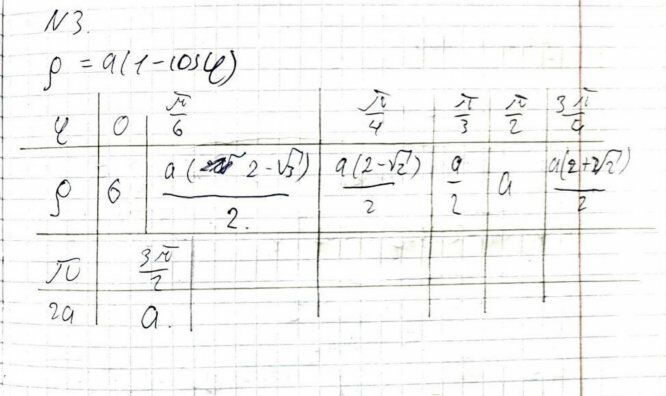 N3.
ρ = a(1-cosφ)
φ 0 π/6 π/4 π/3 π/2 3π/4
ρ 0 a(2-√3)/2. a(2-√2)/2 a/2 a a(2+√2)/2
π 3π/2
2a a.